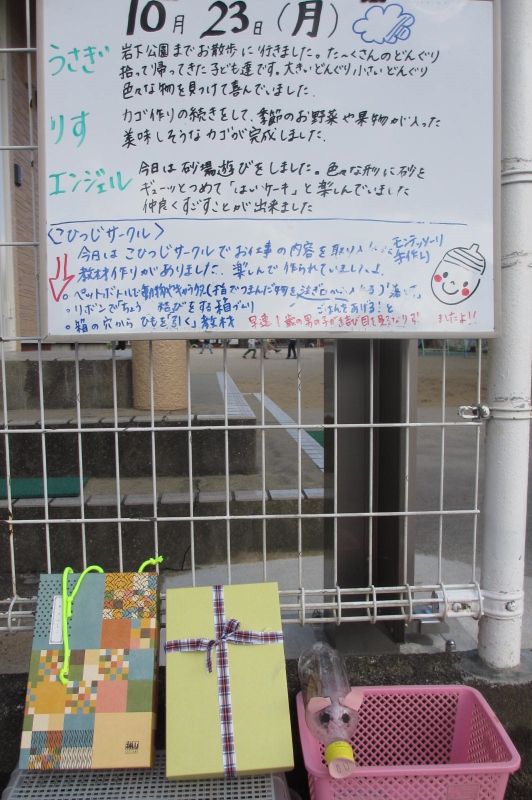 10月23日(月)
うさぎ
岩下公園までお散歩に行きました。た〜くさんのどんぐり
拾って帰ってきた子ども達です。大きいどんぐり小さいどんぐり
色々な物を見つけて喜んでいました。
りす
カゴ作りの続きをして、季節のお野菜や果物が入った
美味しそうなカゴが完成しました。
エンジェル
今日は砂場遊びをしました。色々な形に砂を
ギューッとつめて「はいケーキ」と楽しんでいました
仲良くすごすことが出来ました
<こひつじサークル>
今日はこひつじサークルでお仕事の内容を取り入 モンテッソーリ
教材作りがありました。楽しんで作られていました 手作り
・ペットボトルで動物 (指でつまんだ物を
・リボンで「ちょう 結びをする箱づくり ごはんをあげる!と
・箱の穴から ひもを「引く」教材 早速1歳の男の子が結び目を ましたよ!!